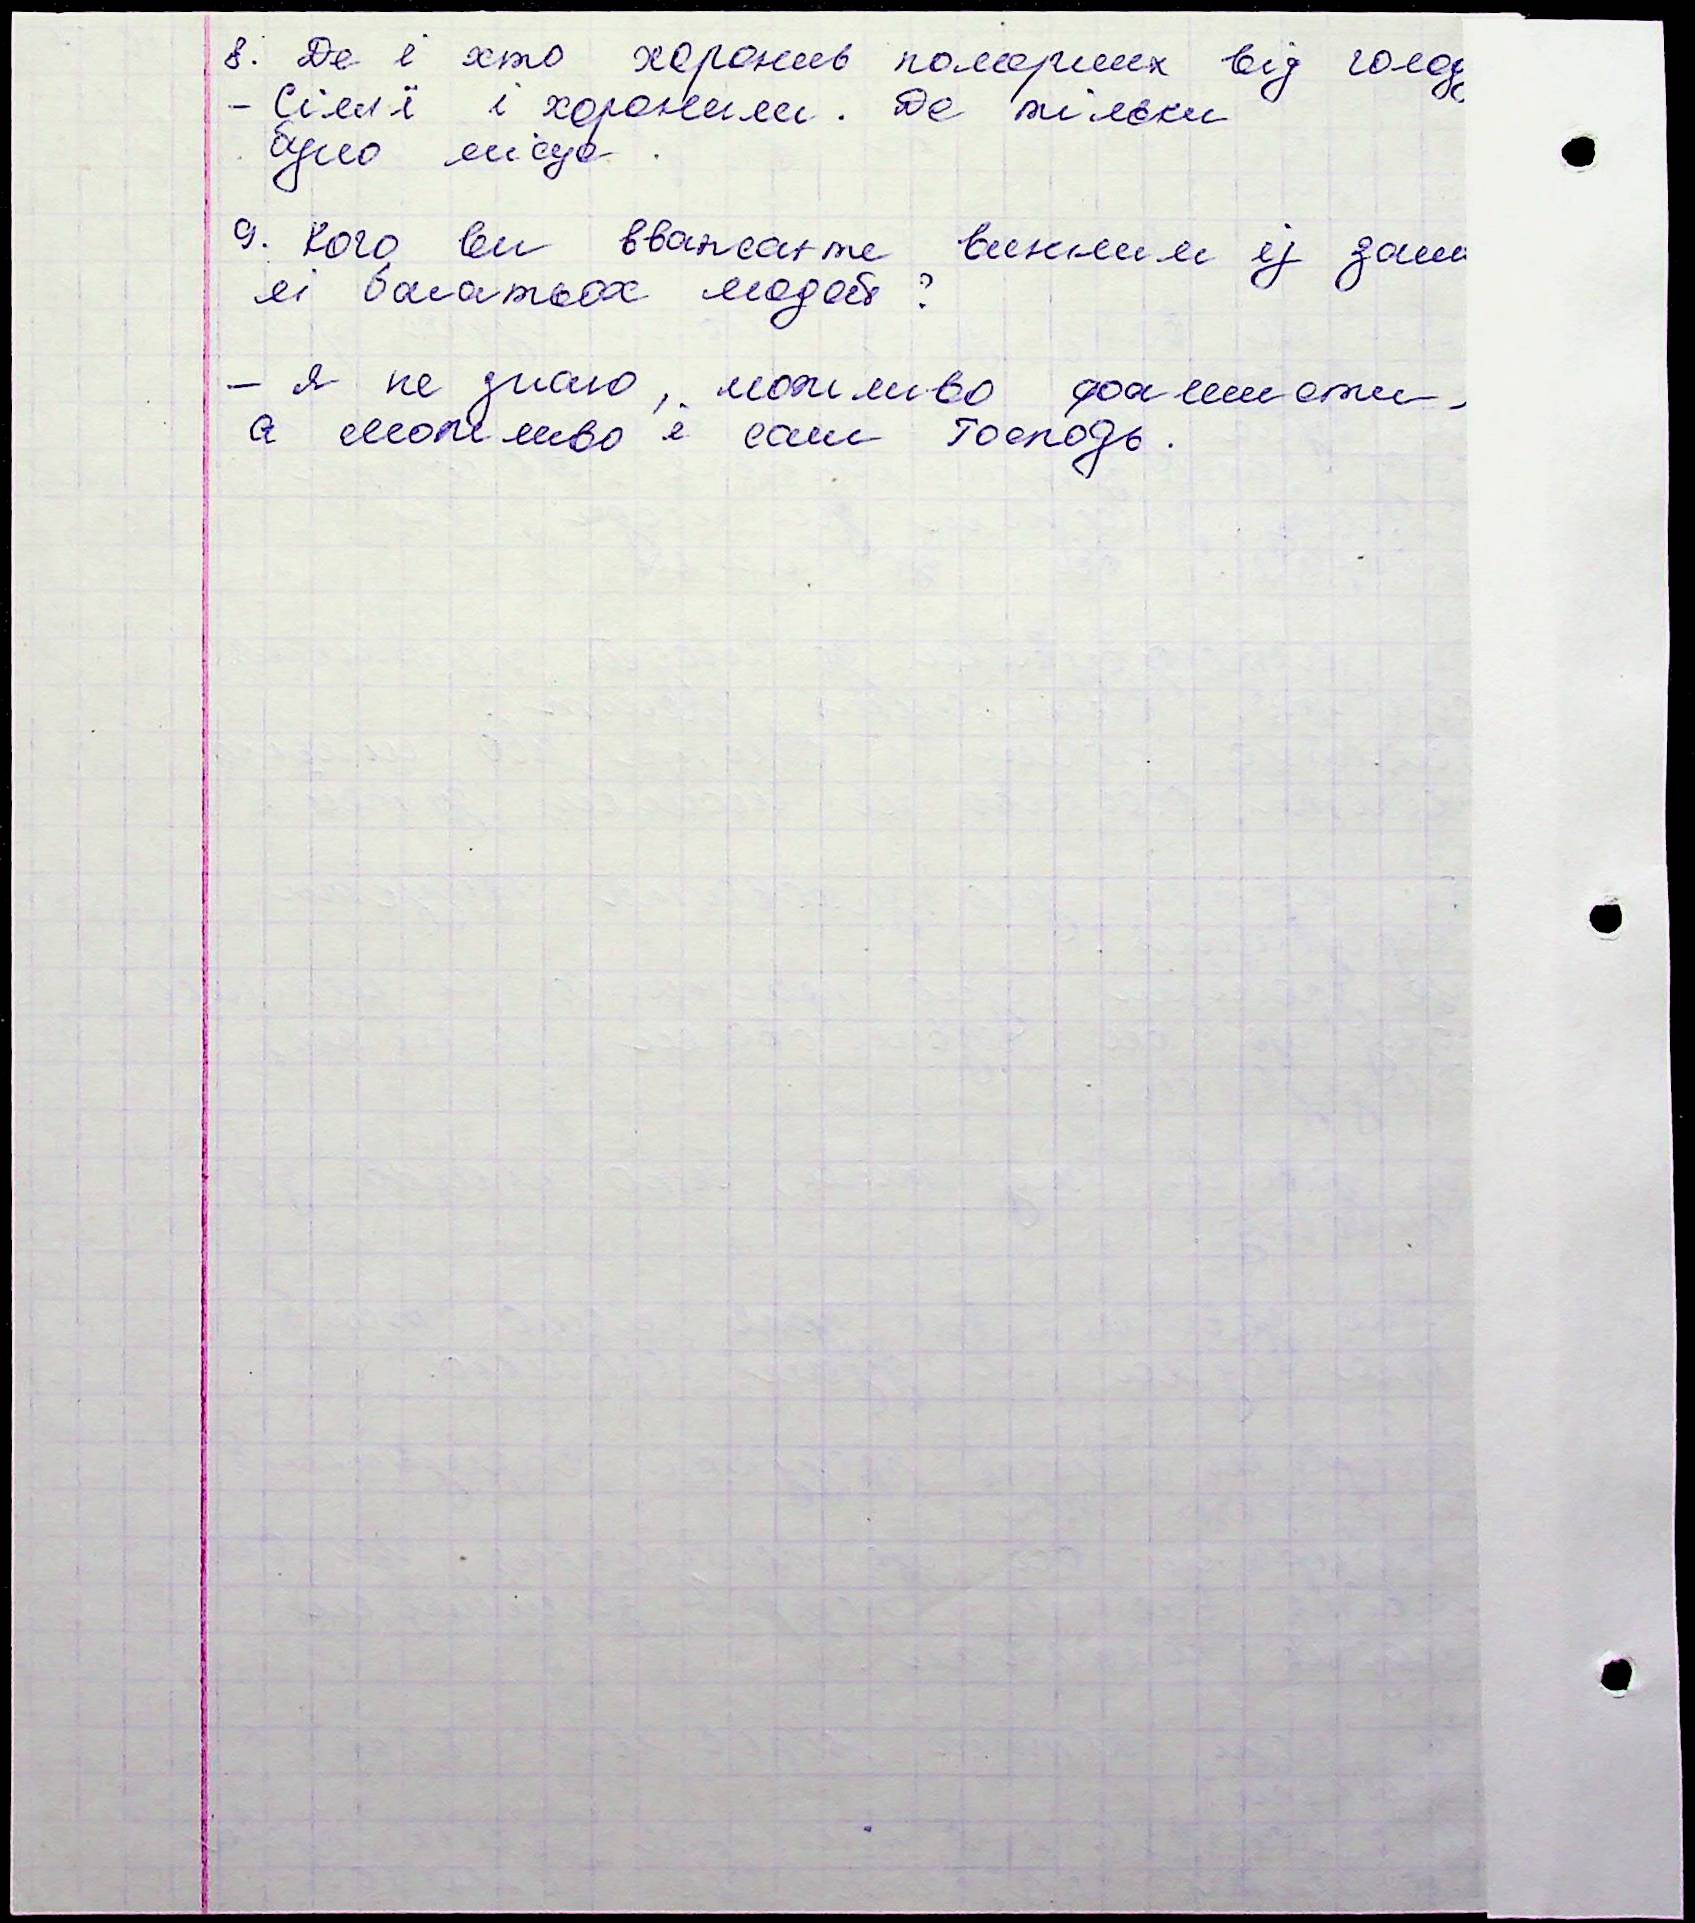 8. Де і хто хоронив померших від голоду
- Сім'ї і хоронили. Де тільки
було місце.
9. Кого ви вважаєте винним із заги
лі багатьох людей?
- Я не знаю, можливо фашисти,
а можливо і сам Господь.